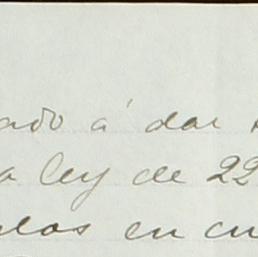 ado á dar
a ley de 22
las en cu